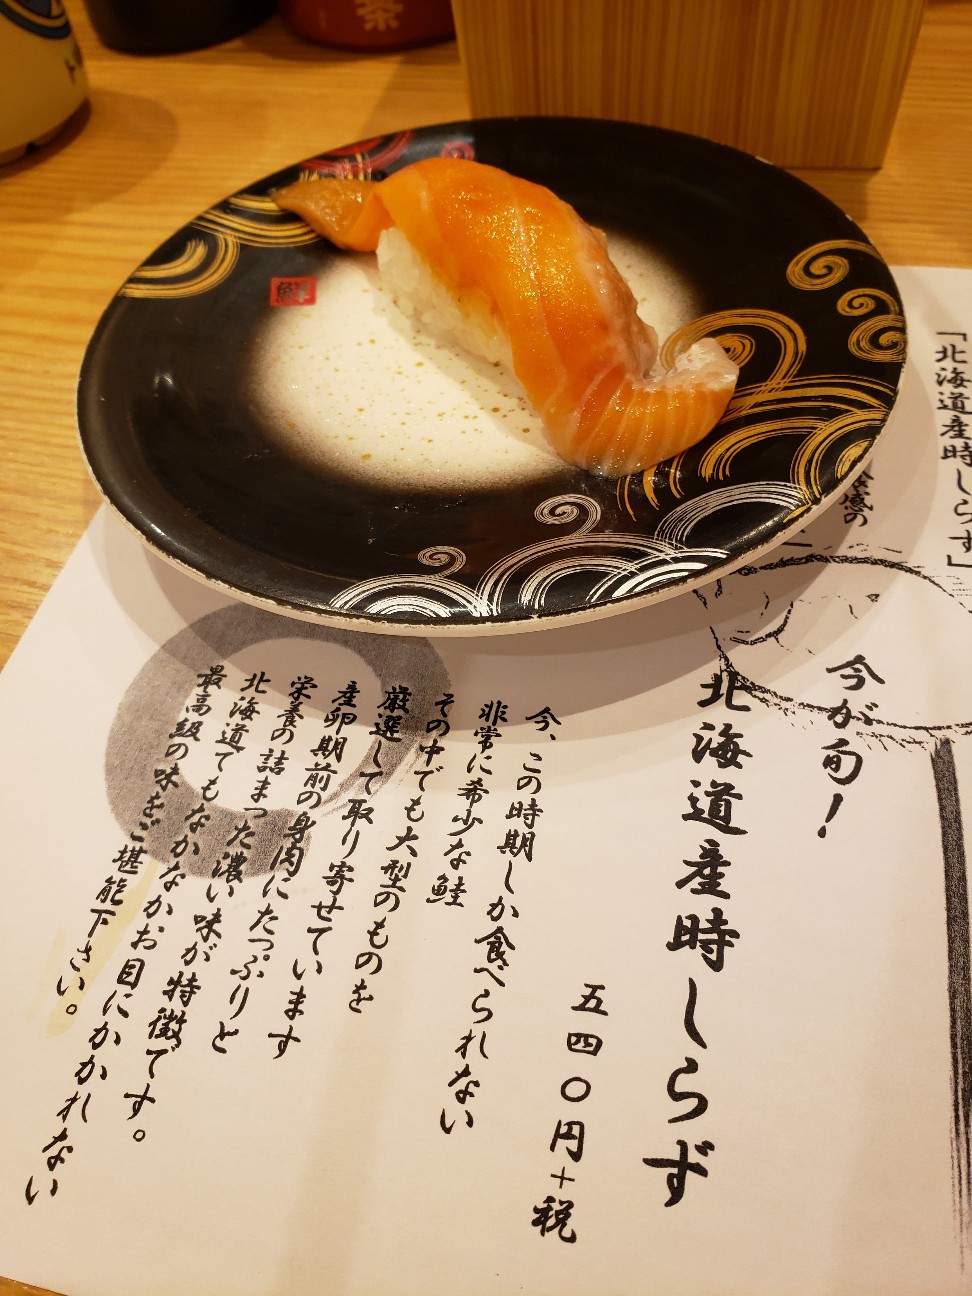 茶
鮮
「北海道産時しらず」
今が旬！
北海道産時しらず
五四〇円＋税
今、この時期しか食べられない
非常に希少な鮭
その中でも大型のものを
厳選して取り寄せています
産卵期前の身肉にたっぷりと
栄養の詰まった濃い味が特徴です。
北海道でもなかなかお目にかかれない
最高級の味をご堪能下さい。